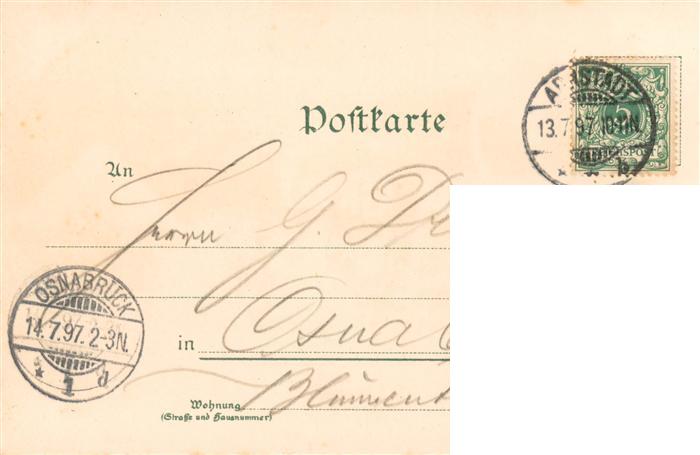 Postkarte
ARNSTADT
13.7.97. 10-11N.
* 1. b.
5
REICHSPOST
An
Herrn G.
OSNABRÜCK
14.7.97. 2-3N.
* 1 d
in
Wohnung
(Straße und Hausnummer)